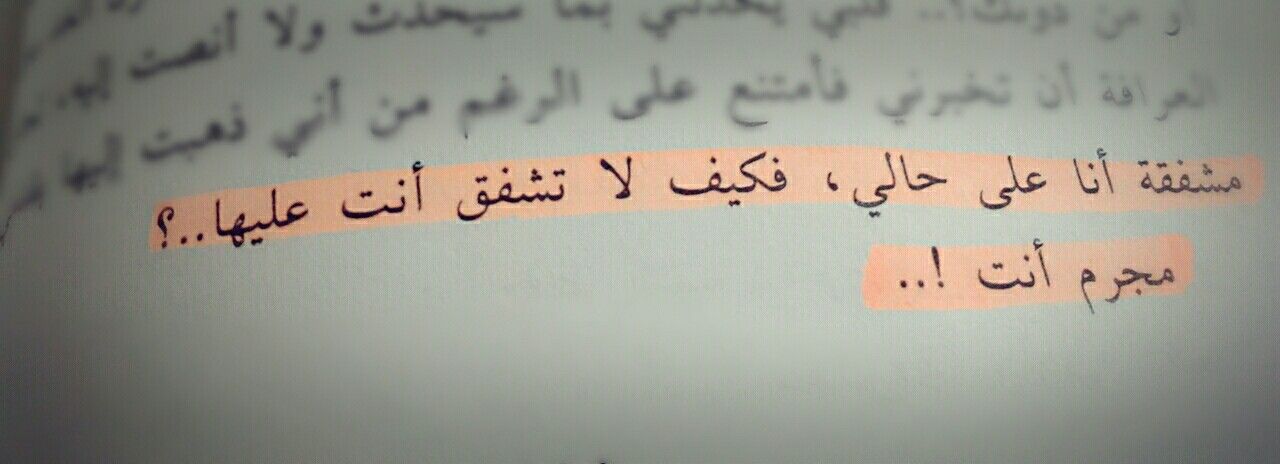 أو من دونك؟.. قلبي يحدثني بما سيحدث ولا أنصت إليه.
العرافة أن تخبرني فأمتنع على الرغم من أني ذهبت إليها
مشفقة أنا على حالي، فكيف لا تشفق أنت عليها..؟
مجرم أنت !..